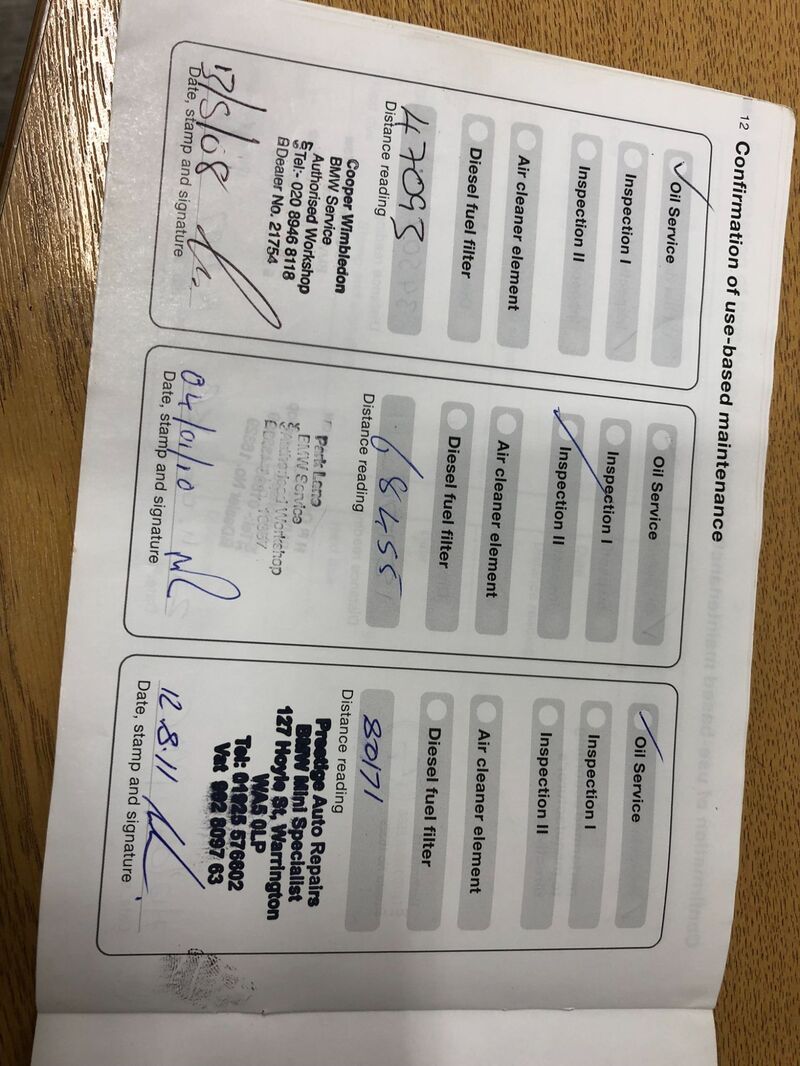 12 Confirmation of use-based maintenance
✓ Oil Service
Inspection I
Inspection II
Air cleaner element
Diesel fuel filter
47093
Distance reading
Cooper Wimbledon
BMW Service
Authorised Workshop
Tel:- 020 8946 8118
Dealer No. 21754
13/5/08
Date, stamp and signature
Oil Service
Inspection I
✓ Inspection II
Air cleaner element
Diesel fuel filter
68455
Distance reading
Park Lane
BMW Service
Authorised Workshop
04/01/10
Date, stamp and signature
✓ Oil Service
Inspection I
Inspection II
Air cleaner element
Diesel fuel filter
80171
Distance reading
Prestige Auto Repairs
BMW Mini Specialist
127 Hoyle St, Warrington
WA5 0LP
Tel: 01925 576602
Vat 982 8097 63
12.8.11
Date, stamp and signature